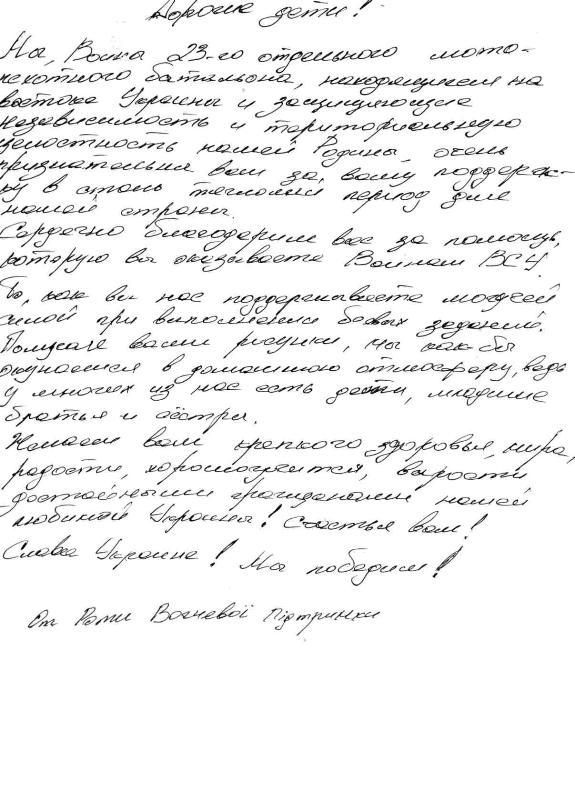 Дорогие дети!
Мы, Воины 23-го отдельного мото-
пехотного батальона, находящиеся на
востоке Украины и защищающие
Независимость и територриальную
целостность нашей Родины, очень
признательны вам за, вашу поддерж-
ку в столь тяжолый период для
нашей страны.
Сердечно благодарим вас за помощь,
которую вы оказываете Воинам ВСУ.
То, как вы нас поддерживаете
силой при выполнении боевых заданий.
Получая ваши рисунки, мы как-бы
окунаемся в домашнюю атмосферу, ведь
у многих из нас есть дети, младшие
братья и сёстры.
Желаем вам крепкого здоровья, мира,
радости, хорошо учится, вырости
достойными гражданами нашей
любимой Украины! Счастья вам!
Слава Украине! Мы победим!
От Роти Вогневої Підтримки